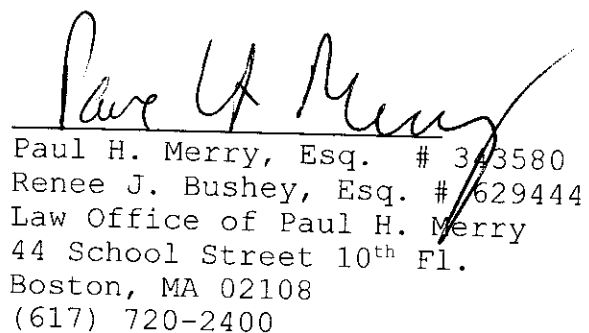 Paul H. Merry
Paul H. Merry, Esq. # 343580
Renee J. Bushey, Esq. # 629444
Law Office of Paul H. Merry
44 School Street 10th Fl.
Boston, MA 02108
(617) 720-2400